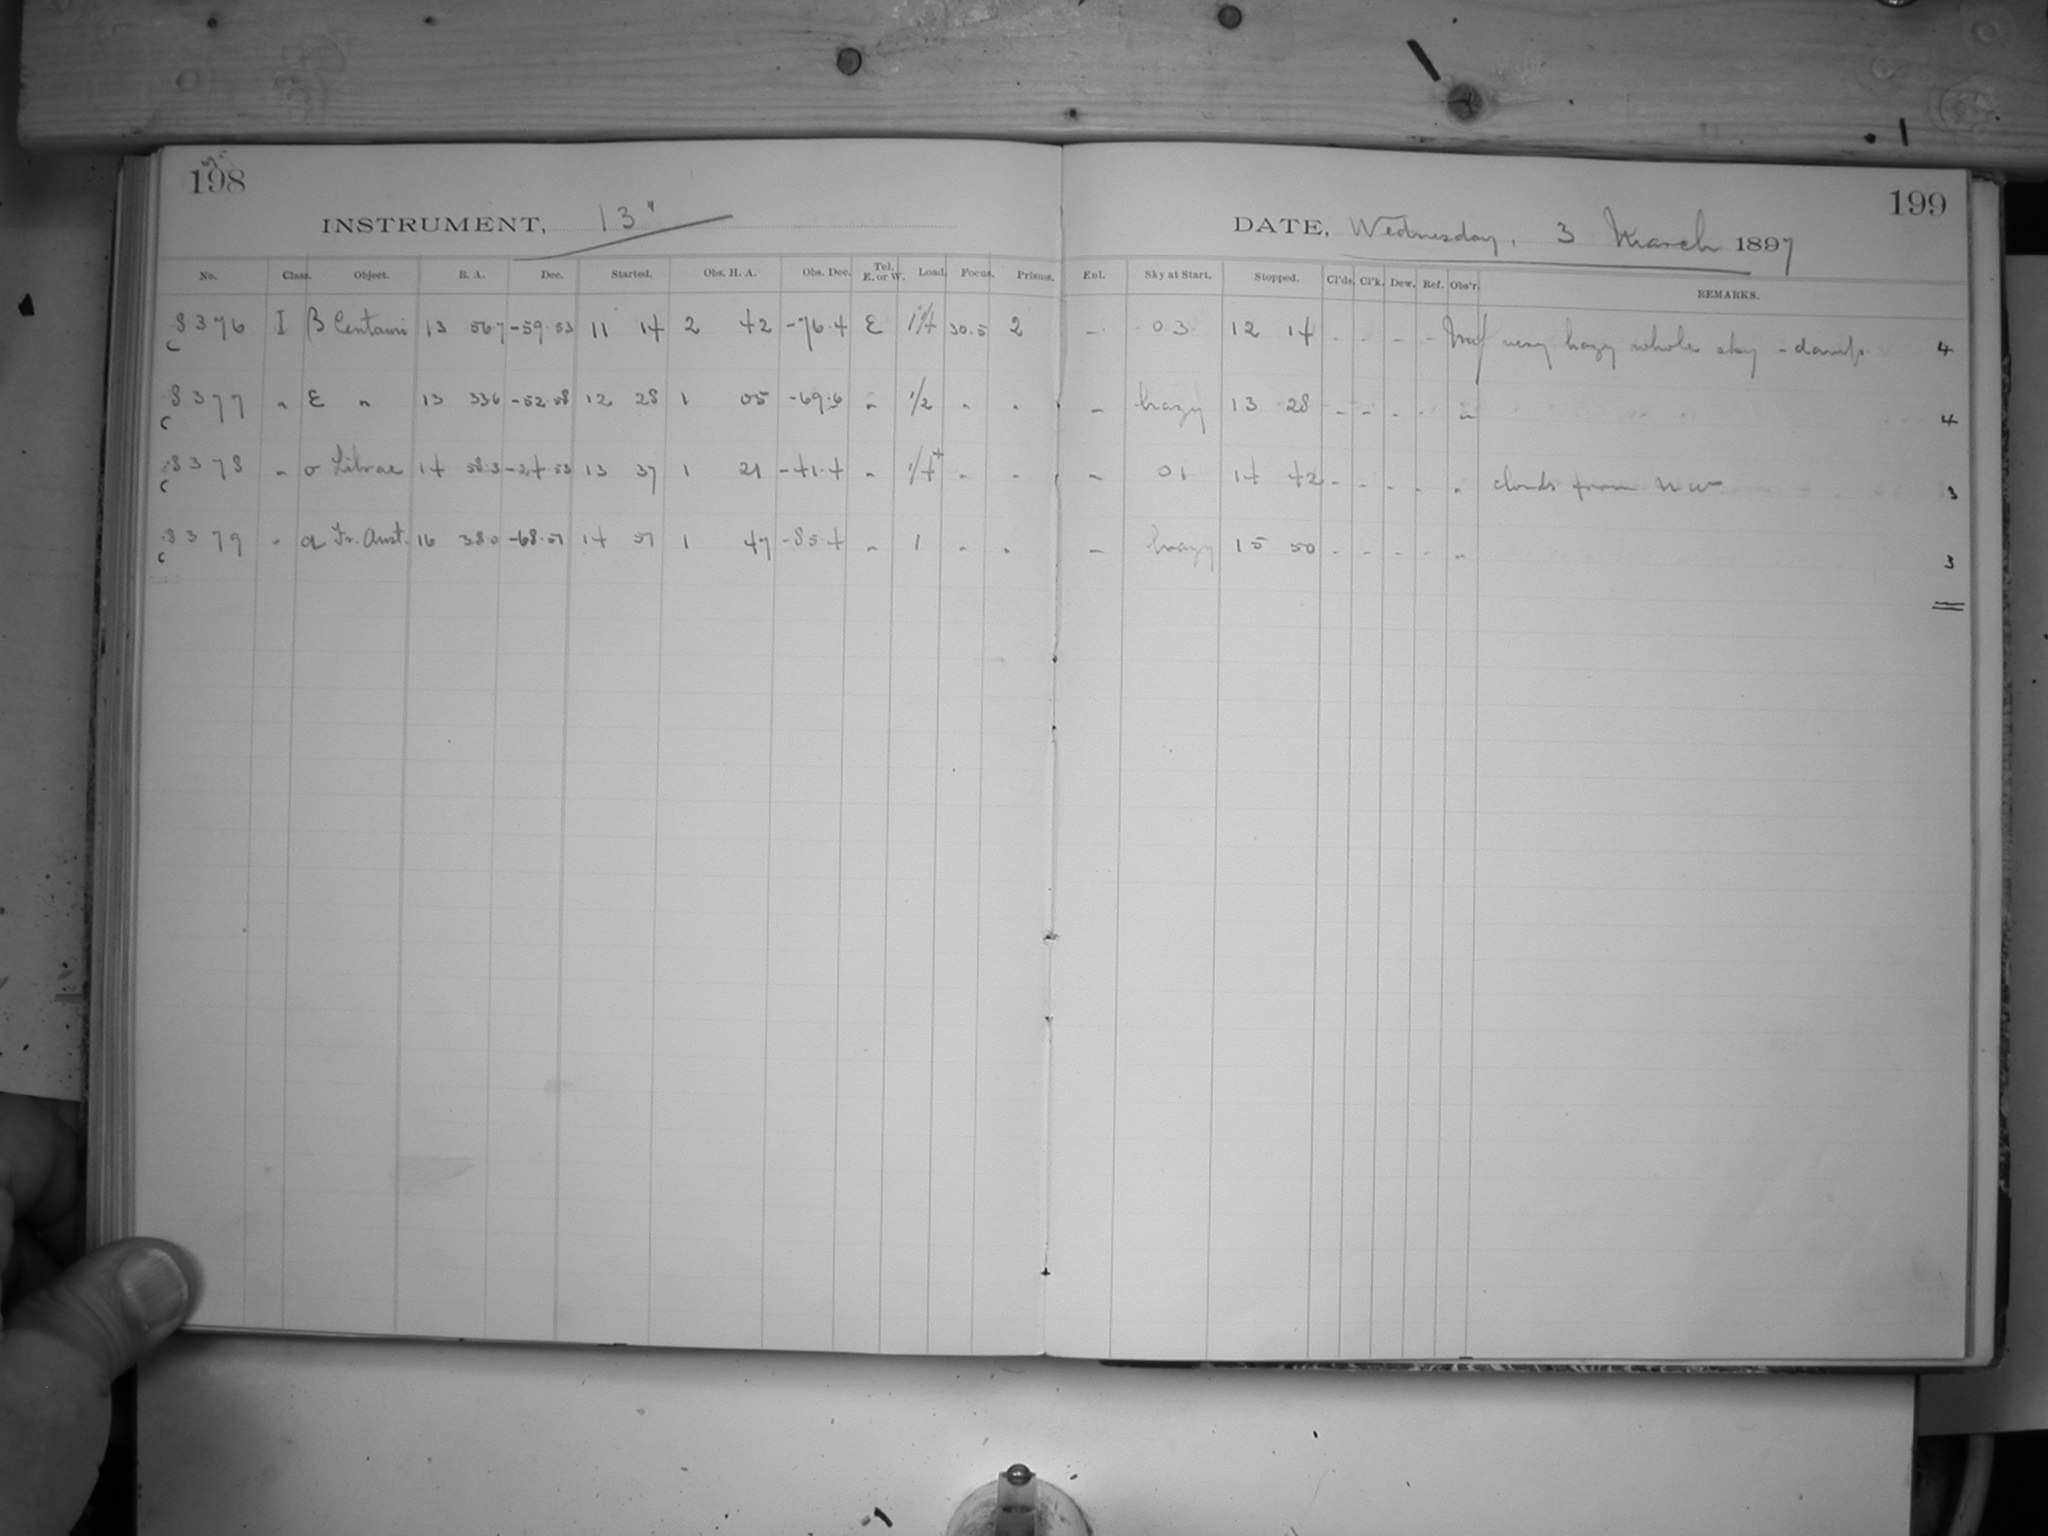 198
199
INSTRUMENT, 13"
DATE, Wednesday, 3 March 1897
No. Class. Object. R. A. Dec. Started. Obs. H. A. Obs. Dec. Tel. E. or W. Load. Focus. Prisms. Enl. Sky at Start. Stopped. Cl'ds. Cl'k. Dew. Ref. Obs'r. REMARKS.
8376 I β Centauri 13 56.7 -59.53 11 14 2 42 -76.4 E 30.5 2 - 03 12 14 - - - - very hazy whole sky - damp. 4
c
8377 " ε " 13 33.6 -52.58 12 28 1 05 -69.6 " 1/2 " " - hazy 13 28 - - - - " 4
c
8378 " σ Librae 14 58.3 -24.53 13 37 1 21 -41.4 " 1/4+ " " - 01 14 42 - - - - " clouds from NW 3
c
8379 " α Tr. Aust. 16 38.0 -68.51 14 51 1 47 -85.4 " 1 " " - hazy 15 50 - - - - " 3
c